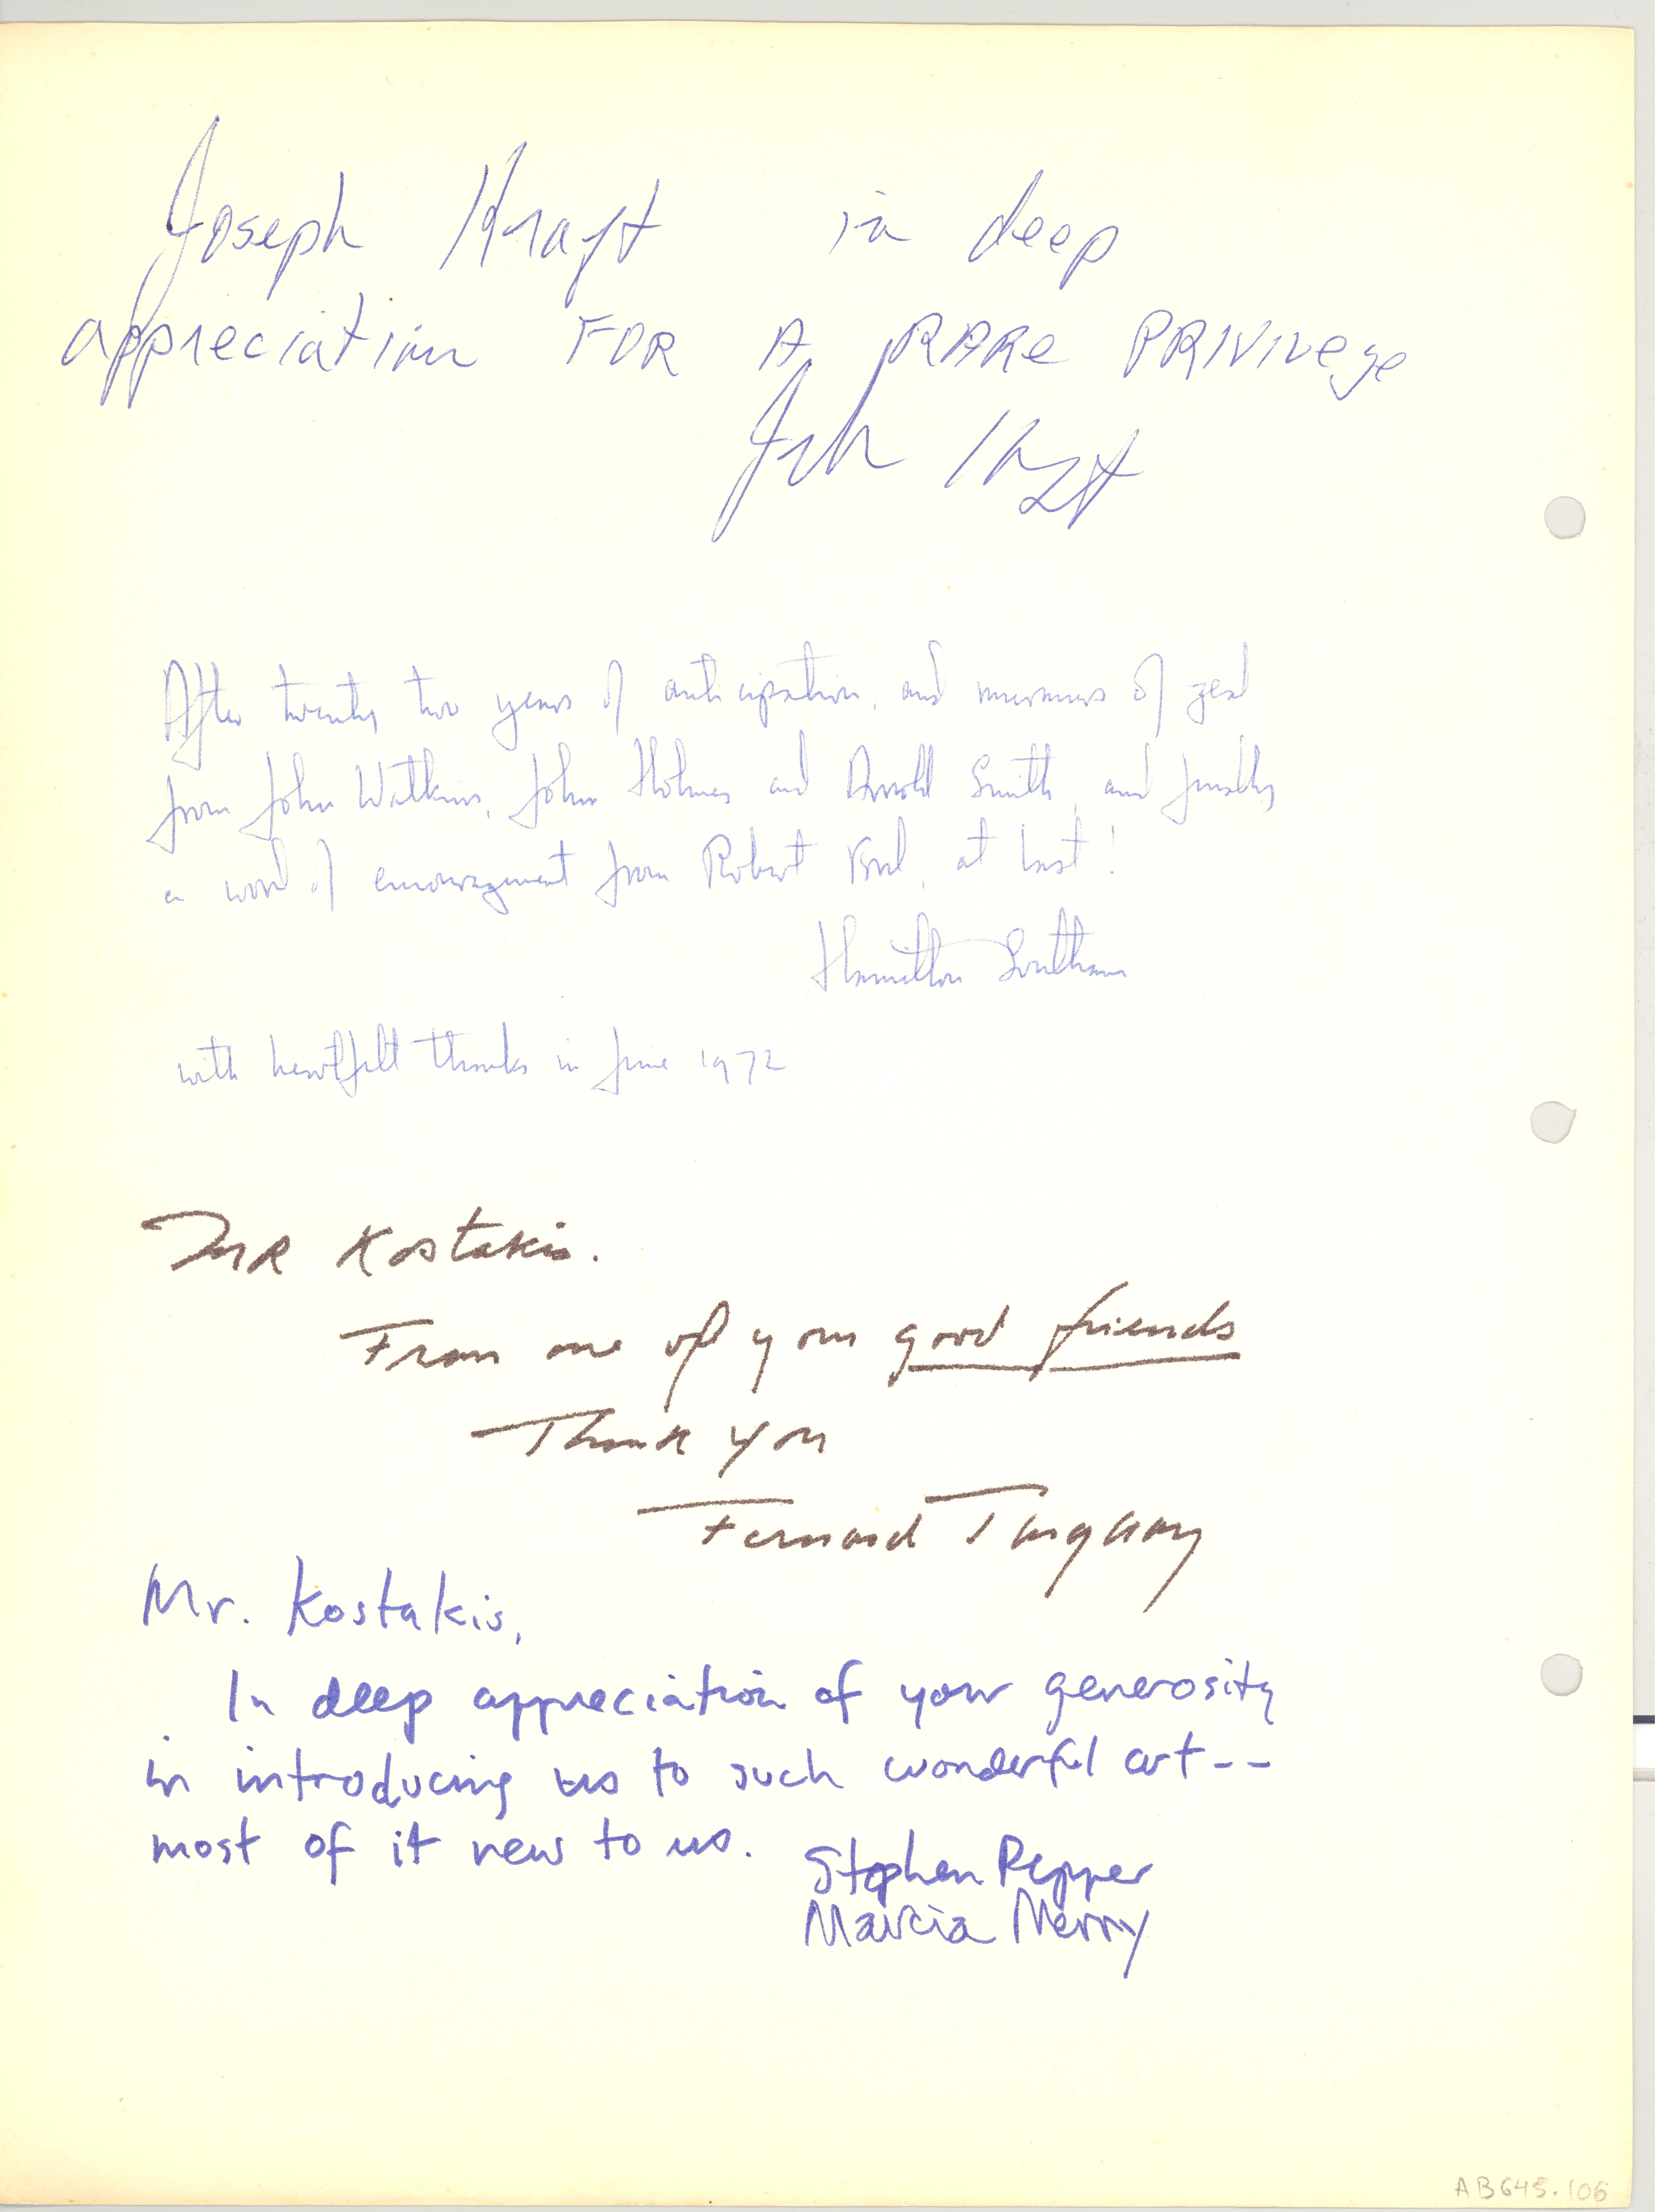 Joseph Kraft in deep
appreciation FOR A RARE PRIVILege
After twenty two years of anticipation, and murmurs of zeal
from John Watkins, John Holmes and Arnold Smith, and finally
a word of encouragement from Robert Ford, at last!
Hamilton Southam
with heartfelt thanks in June 1972
MR Kostakis.
From one of your good friends
Thank you
Fernand Tanguay
Mr. Kostakis,
In deep appreciation of your generosity
in introducing us to such wonderful art--
most of it new to us.
Stephen Pepper
Marcia Merry
AB645.106